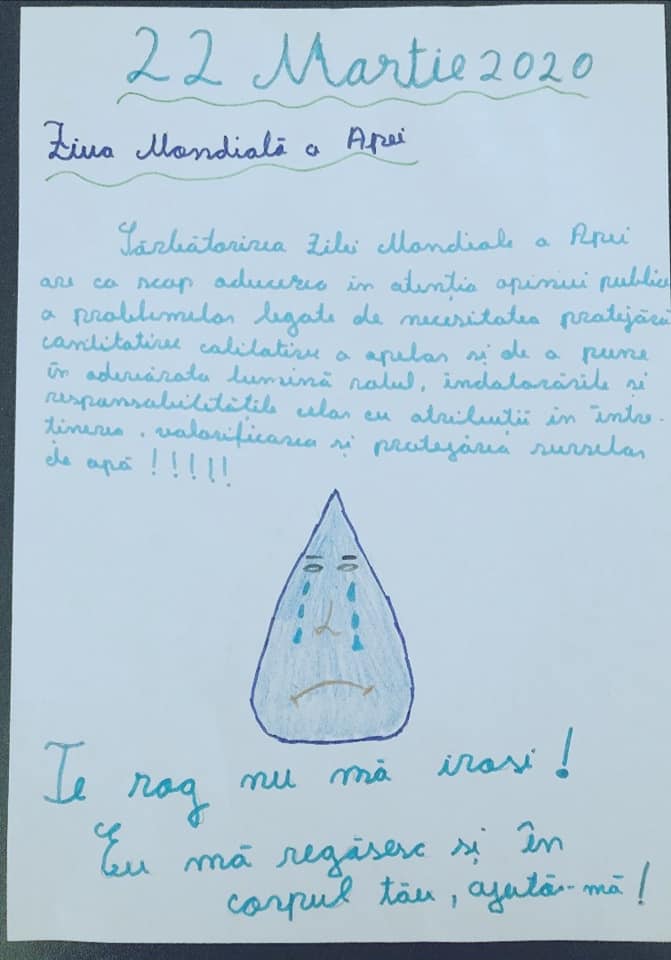 22 Martie 2020
Ziua Mondială a Apei
Sărbătorirea Zilei Mondiale a Apei
are ca scop aducerea în atenția opiniei publice
a problemelor legate de necesitatea protejării
cantitative calitative a apelor și de a pune
în adevărata lumină rolul, îndatorările și
responsabilitățile celor cu atribuții în între-
ținerea, valorificarea și protejarea surselor
de apă !!!!!
Te rog nu mă irosi!
Eu mă regăsesc și în
corpul tău, ajută-mă!